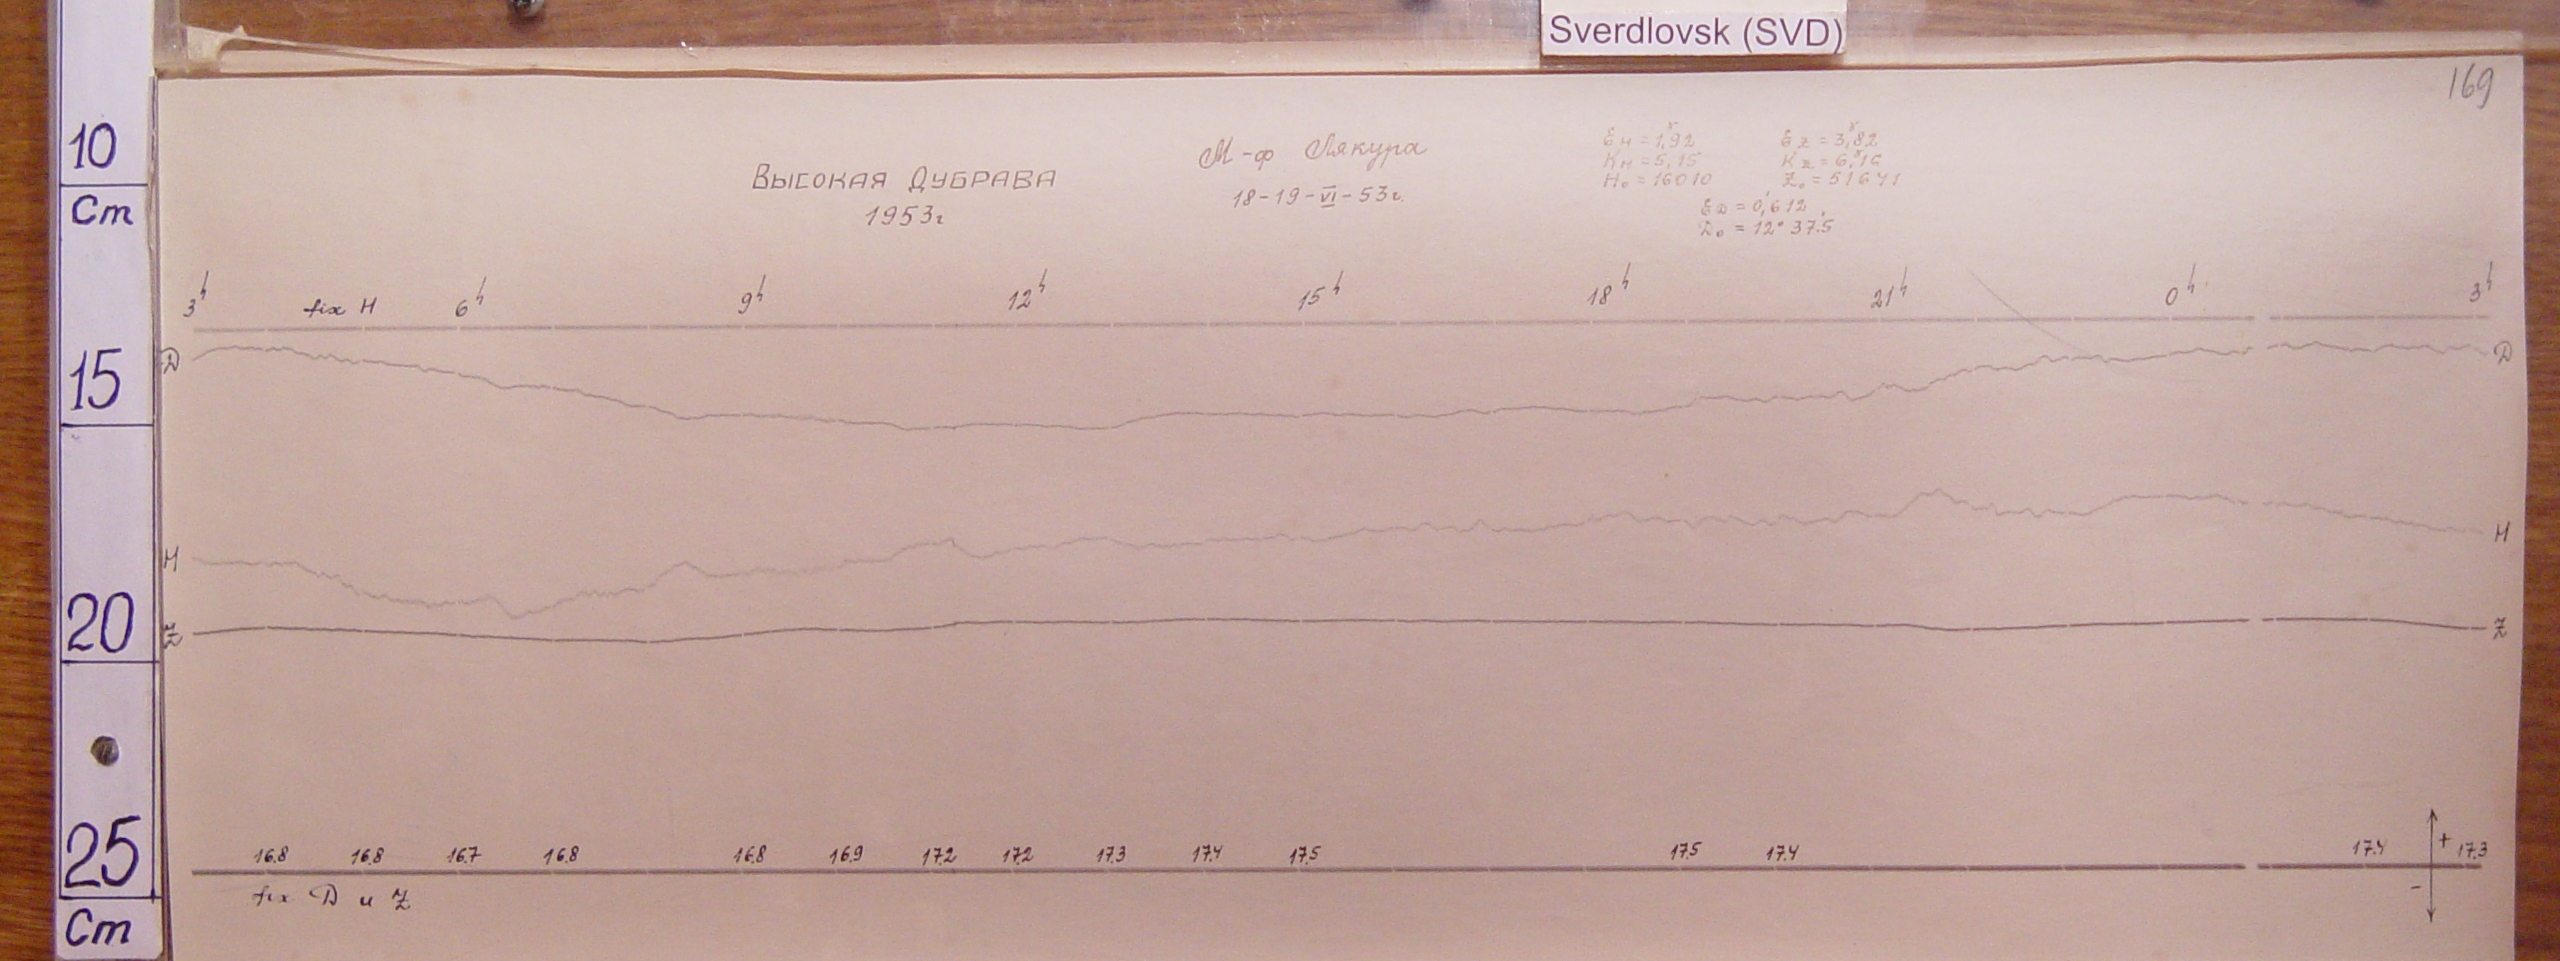 Sverdlovsk (SVD)
169
10
Cm
15
20
25
Cm
Высокая Дубрава
1953г
М-ф Лякура
18-19-VI-53г.
Ен = 1,92γ
Кн = 5,15
Н₀ = 16010
Еz = 3,82γ
Z₀ = 51641
ЕD = 0,612
D₀ = 12° 37.5
3h fix H 6h 9h 12h 15h 18h 21h 0h 3h
D D
H H
Z Z
16.8 16.8 16.7 16.8 16.8 16.9 17.2 17.2 17.3 17.4 17.5 17.5 17.4 17.4 + 17.3
-
fix D и Z